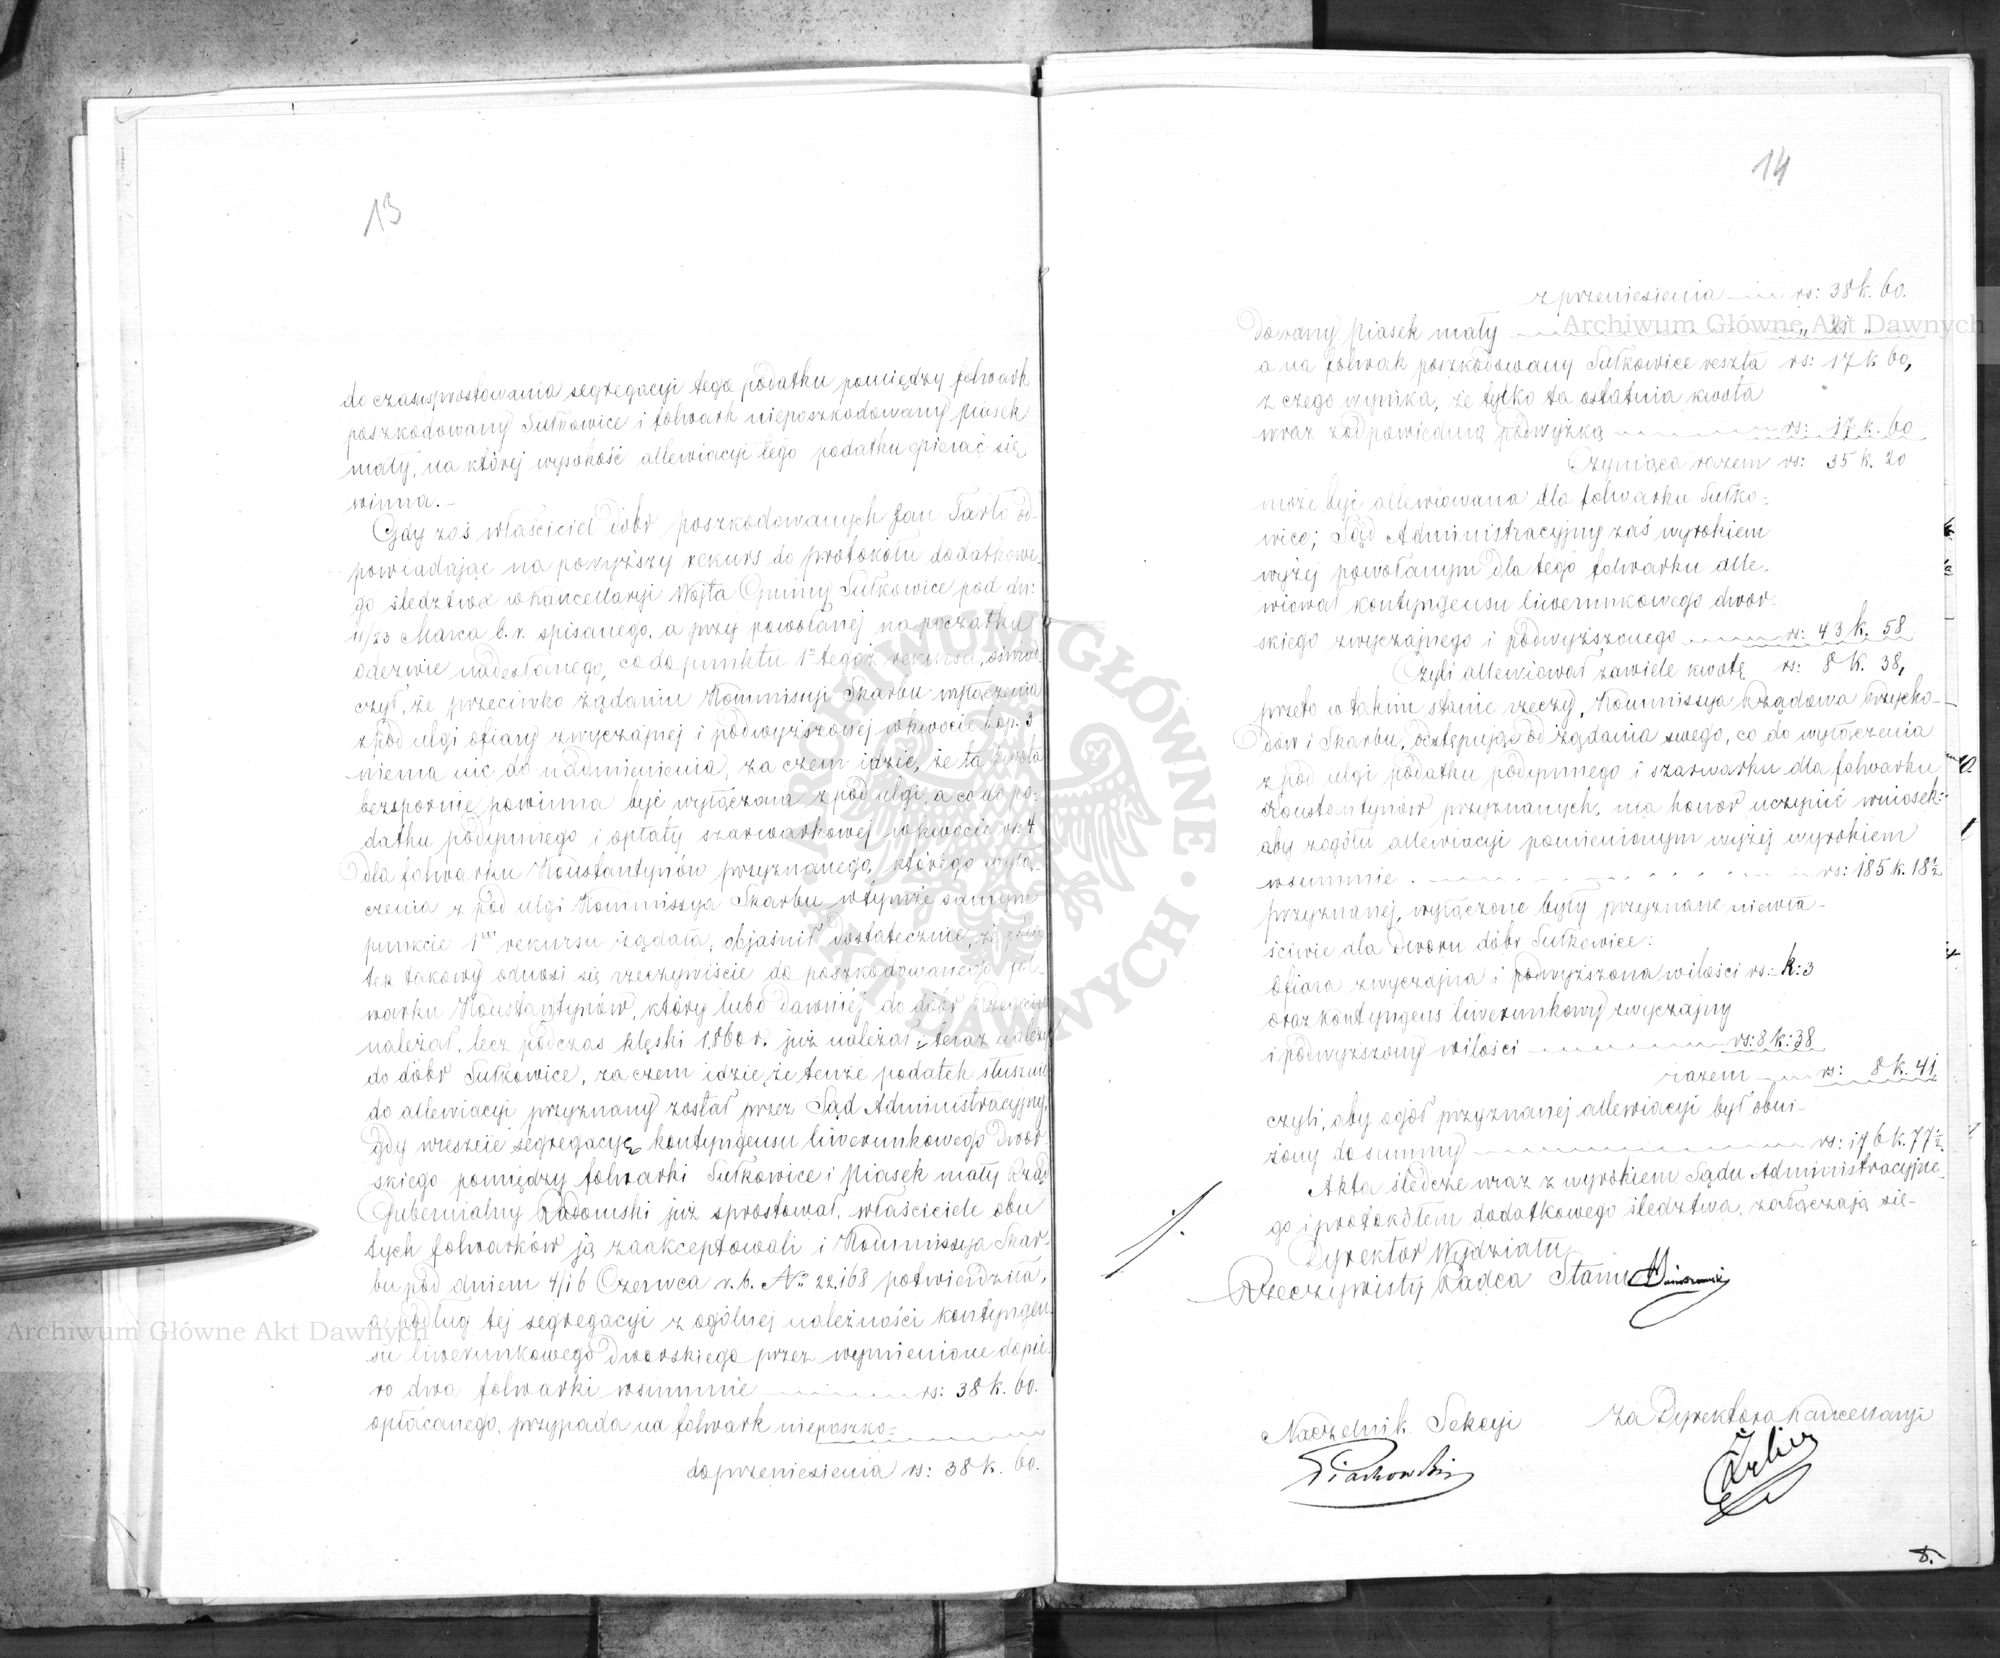 13
do czasu sprostowania segregacyi tego podatku pomiędzy folwark
poszkodowany Sułkowice i folwark nieposzkodowany Piasek
mały, na której wysokość allewiacyi tego podatku opierać się
winna.–
Gdy zaś właściciel dóbr poszkodowanych Jan Tarło od-
powiadając na powyższy rekurs do protokółu dodatkowe-
go śledztwa w Kancellaryi Wójta Gminy Sułkowice pod dn:
11/23 Marca b. r. spisanego, a przy powołanej na początku
odezwie nadesłanego, co do punktu 1º tegoż rekursu, oświad-
czył, że przeciwko żądaniu Kommissyi Skarbu wyłączenia
z pod ulgi ofiary zwyczajnej i podwyższonej w kwocie kop. 3
niema nic do nadmienienia, za czem idzie, że ta kwota
bezspornie powinna być wyłączona z pod ulgi, a co do po-
datku podymnego i opłaty szarwarkowej w kwocie rs: 4
dla folwarku Konstantynów przyznanego, którego wyłą-
czenia z pod ulgi Kommissya Skarbu w tymże samym
punkcie 1m rekursu żądała, objaśnił dostatecznie, że
tek takowy odnosi się rzeczywiście do poszkodowanego fol-
warku Konstantynów, który lubo dawniej do dóbr
należał, lecz podczas klęski 1860 r. już należał i teraz należy
do dóbr Sułkowice, za czem idzie, że tenże podatek słusznie
do allewiacyi przyznany został przez Sąd Administracyjny,
gdy wreszcie segregacyę kontyngensu liwerunkowego dwor-
skiego pomiędzy folwarki Sułkowice i Piasek mały Rząd
Gubernialny Radomski już sprostował, właściciele obu
tych folwarków ją zaakceptowali i Kommissya Skar-
bu pod dniem 4/16 Czerwca r. b. Nº 22.168 potwierdziła,
a podług tej segregacyi z ogólnej należności kontyngen-
su liwerunkowego dworskiego przez wymienione dopie-
ro dwa folwarki w summie rs: 38 k. 60.
opłacanego, przypada na folwark nieposzko-
do przeniesienia rs: 38 k. 60.
14
z przeniesienia rs: 38 k. 60.
dowany Piasek mały „ 21 „
a na folwark poszkodowany Sułkowice reszta rs: 17 k. 60,
z czego wynika, że tylko ta ostatnia kwota
wraz z odpowiednią podwyżką rs: 17 k. 60
Czyniąca razem rs: 35 k. 20
może być allewiowana dla folwarku Sułko-
wice; Sąd Administracyjny zaś wyrokiem
wyżej powołanym dla tego folwarku alle-
wiował kontyngensu liwerunkowego dwor-
skiego zwyczajnego i podwyższonego rs: 43 k. 58
Czyli allewiował zawiele kwotę rs: 8 k. 38,
przeto w takim stanie rzeczy, Kommissya Rządowa Przycho-
dów i Skarbu, odstępując od żądania swego, co do wyłączenia
z pod ulgi podatku podymnego i szarwarku dla folwarku
Konstantynów przyznanych, ma honor uczynić wniosek:
aby z ogółu allewiacyi pomienionym wyżej wyrokiem
w summie rs: 185 k. 18½
przyznanej, wyłączone były przyznane niewła-
ściwie dla Dworu dóbr Sułkowice:
Ofiara zwyczajna i podwyższona w ilości rs: k: 3
oraz kontyngens liwerunkowy zwyczajny
i podwyższony w ilości rs: 8 k: 38
razem rs: 8 k. 41
czyli, aby ogół przyznanej allewiacyi był obni-
żony do summy rs: 176 k. 77½
Akta śledcze wraz z wyrokiem Sądu Administracyjne-
go i protokółem dodatkowego śledztwa, załączają się–
Dyrektor Wydziału
Rzeczywisty Radca Stanu
Naczelnik Sekcyi
Za Dyrektora Kancellaryi
Piachowski
8.
Archiwum Główne Akt Dawnych
Archiwum Główne Akt Dawnych
ARCHIWUM GŁÓWNE AKT DAWNYCH